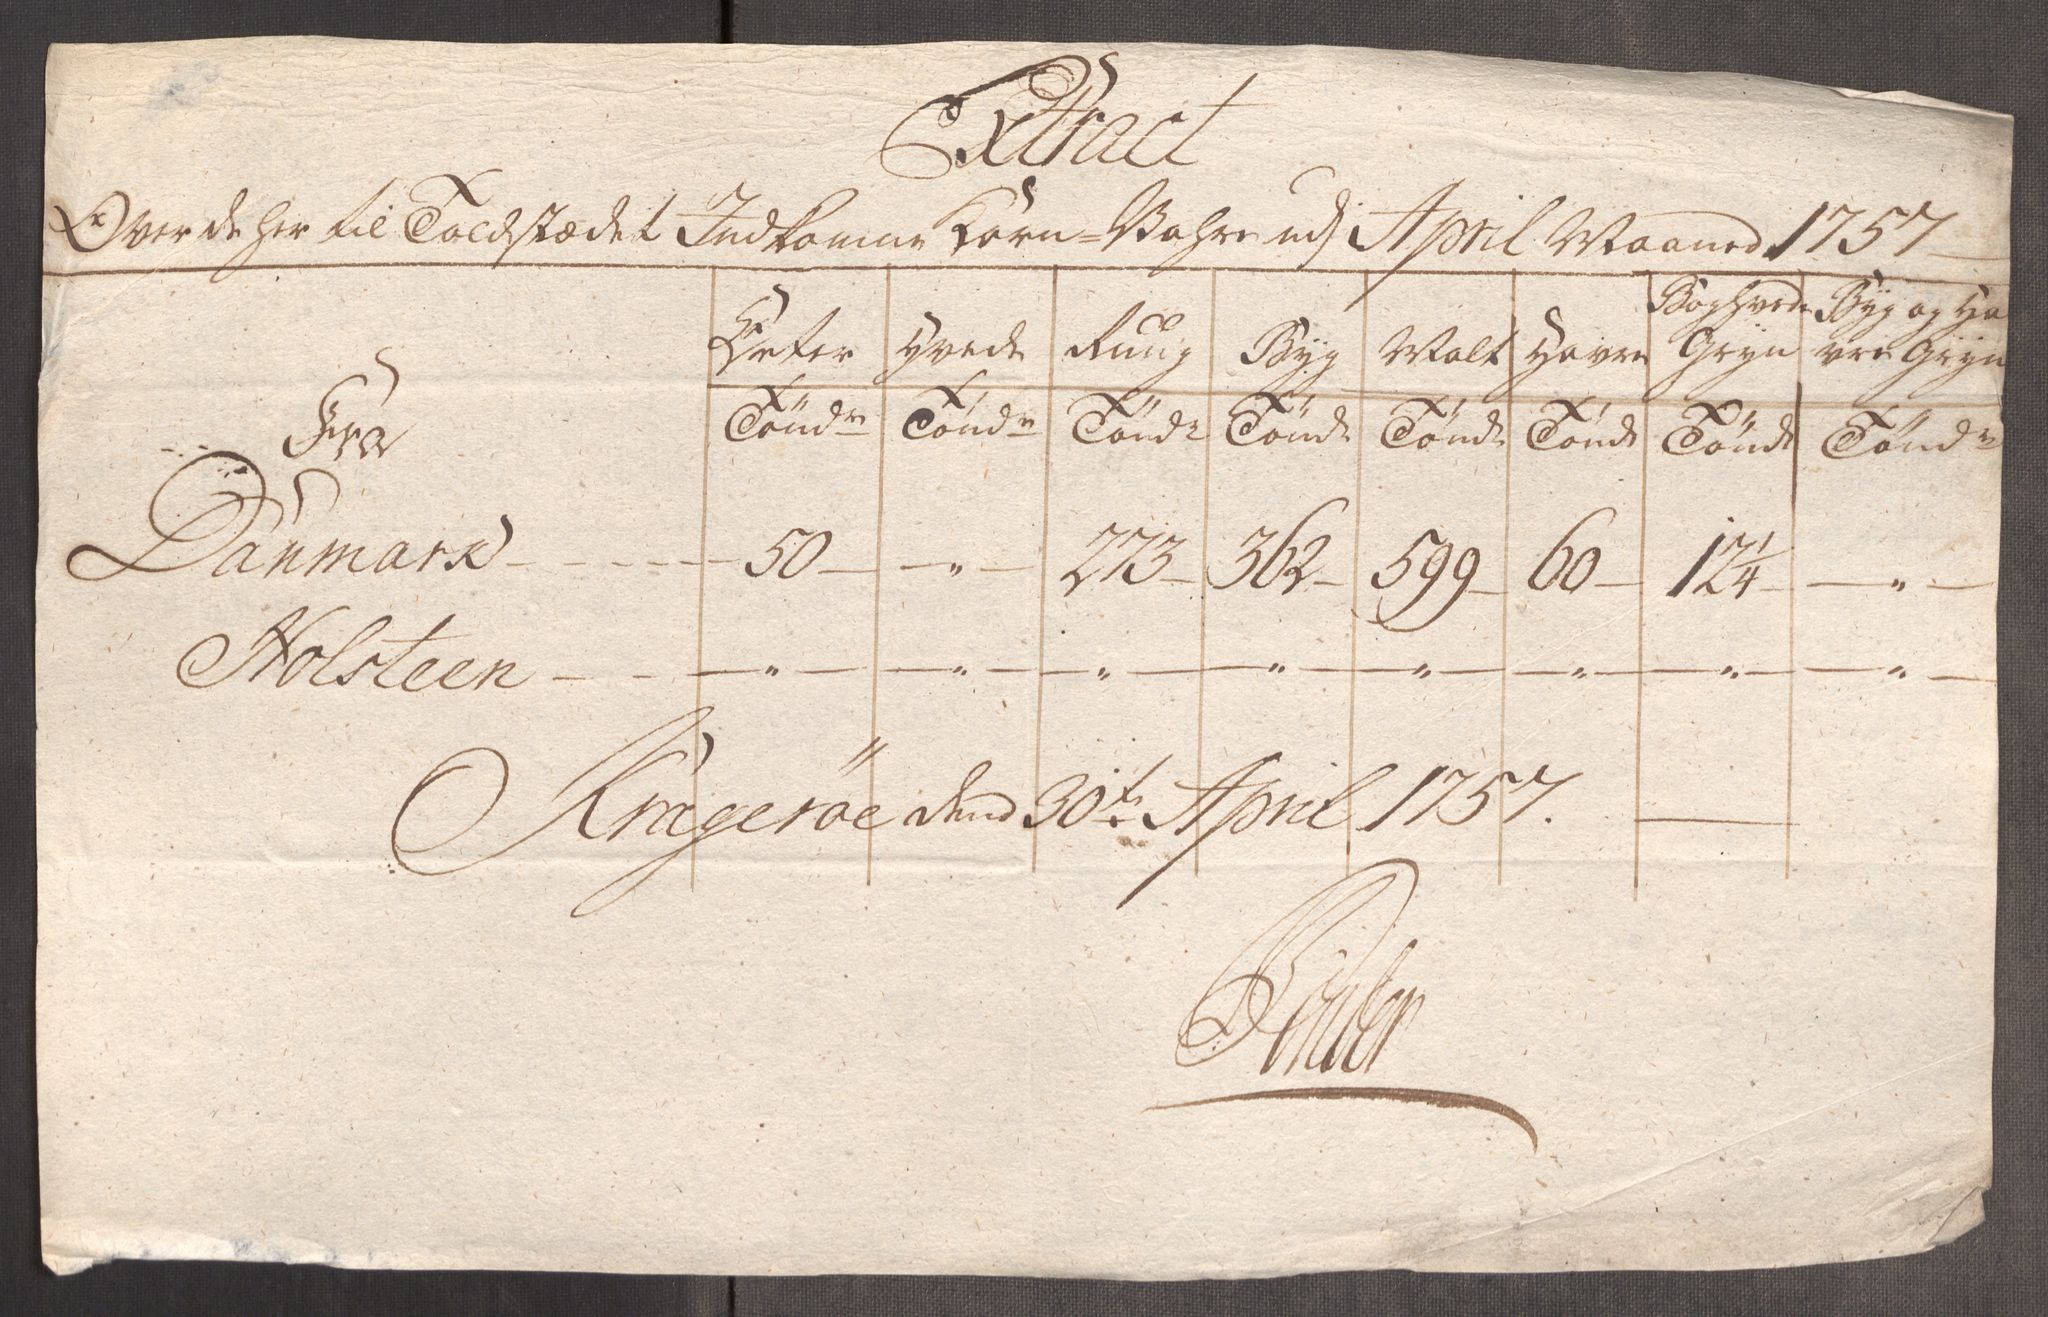 Extract
Over de her til Toldstædet Indkomne Korn-Vahre udj April Maaned 1757
Fra Erter Hvede Rúúg Byg Malt Havre Boghvede Gryn Byg og Havre Gryn
Tönder Tönder Tönde Tönde Tönde Tönde Tönde Tönder
Danmark - - - - 50 - " - 273 - 362 - 599 - 60 - 12 1/4 - " -
Holsteen - - - " - " - " - " - " - " - " - " -
Krageröe dend 30te April 1757.